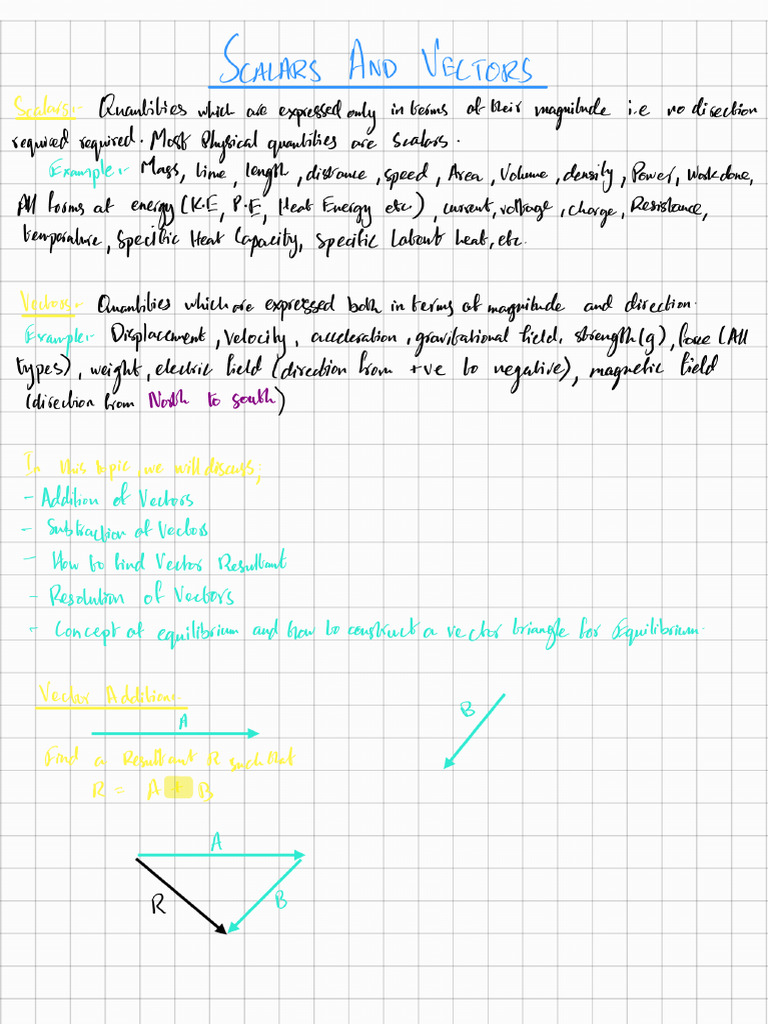 SCALARS AND VECTORS
Scalars:- Quantities which are expressed only in terms of their magnitude i.e no direction
required required. Most Physical quantities are scalars.
Example:- Mass, time, length, distance, speed, Area, Volume, density, Power, Work done,
All forms of energy (K.E, P.E, Heat Energy etc), current, voltage, charge, Resistance,
temperature, Specific Heat Capacity, Specific Latent heat, etc.
Vectors:- Quantities which are expressed both in terms of magnitude and direction.
Example:- Displacement, velocity, acceleration, gravitational field, strength (g), force (All
types), weight, electric field (direction from +ve to negative), magnetic field
(direction from North to south)
In this topic, we will discuss;
- Addition of Vectors
- Subtraction of Vectors
- How to find Vector Resultant
- Resolution of Vectors
- Concept of equilibrium and how to construct a vector triangle for Equilibrium.
Vector Addition:-
A
B
Find a Resultant R such that
R = A + B
A
R
B